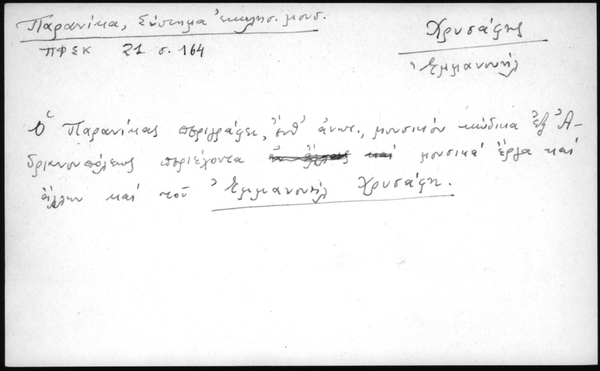 Παρανίκα, Σύστημα ἐκκλησ. μουσ.
ΠΦΣΚ 21 σ. 164
Χρυσάφης
Ἐμμανουήλ
Ὁ Παρανίκας περιγράφει, ἔνθ' ἀνωτ., μουσικὸν κώδικα ἐξ Ἀ-
δριανουπόλεως περιέχοντα μουσικὰ ἔργα καὶ
ἄλλων καὶ τοῦ Ἐμμανουὴλ Χρυσάφη.